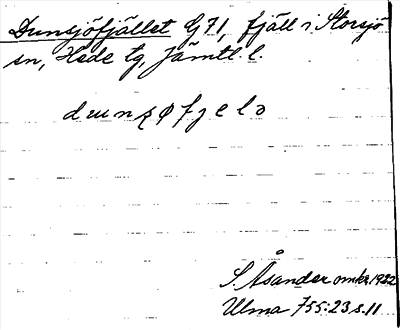 Dunsjöfjället G71, fjäll i Storsjö
sn, Hede tg, Jämtl. l.
d ɯ n ʂ ø f j e l ə
S. Åsander omkr. 1922
Ulma 755:23 s. 11